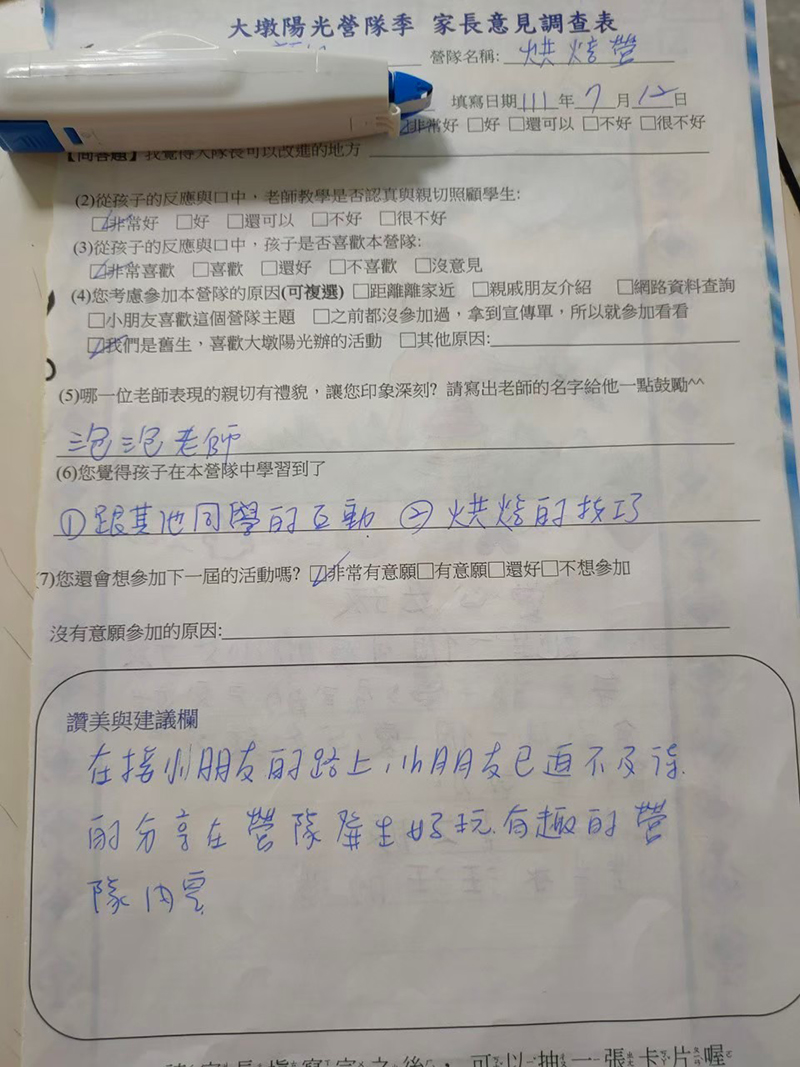 大墩陽光營隊季 家長意見調查表
營隊名稱: 烘焙營
填寫日期111年7月12日
☑非常好 □好 □還可以 □不好 □很不好
【問答題】我覺得大隊長可以改進的地方
(2)從孩子的反應與口中，老師教學是否認真與親切照顧學生:
☑非常好 □好 □還可以 □不好 □很不好
(3)從孩子的反應與口中，孩子是否喜歡本營隊:
☑非常喜歡 □喜歡 □還好 □不喜歡 □沒意見
(4)您考慮參加本營隊的原因(可複選) □距離離家近 □親戚朋友介紹 □網路資料查詢
□小朋友喜歡這個營隊主題 □之前都沒參加過，拿到宣傳單，所以就參加看看
☑我們是舊生，喜歡大墩陽光辦的活動 □其他原因:
(5)哪一位老師表現的親切有禮貌，讓您印象深刻? 請寫出老師的名字給他一點鼓勵^^
泡泡老師
(6)您覺得孩子在本營隊中學習到了
①跟其他同學的互動 ②烘焙的技巧
(7)您還會想參加下一屆的活動嗎? ☑非常有意願□有意願□還好□不想參加
沒有意願參加的原因:
讚美與建議欄
在接小朋友的路上，小朋友已迫不及待
的分享在營隊發生好玩、有趣的營
隊內容
家長填寫完之後，可以抽一張卡片喔